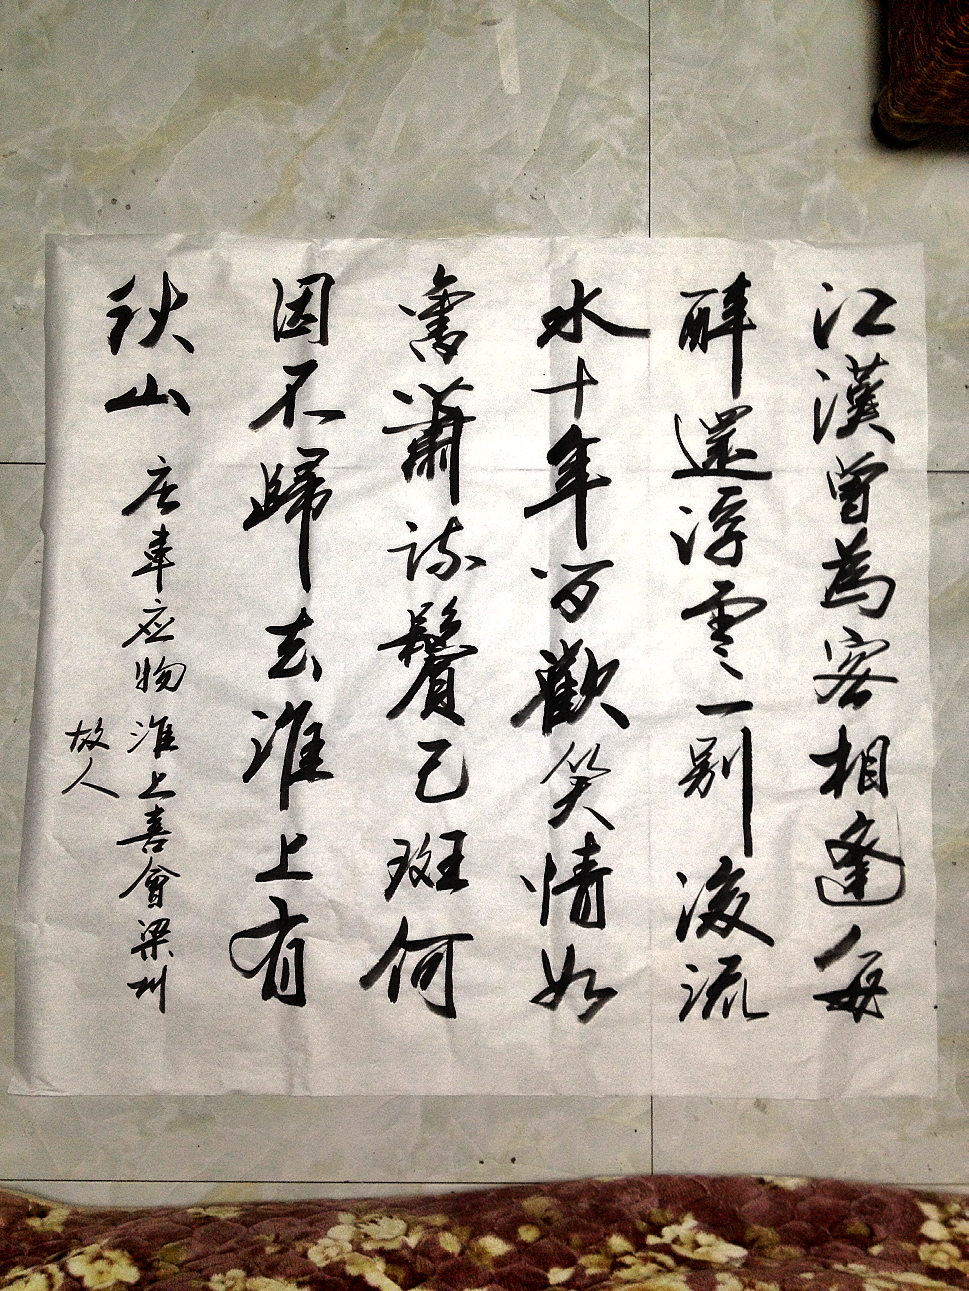 江漢曾為客相逢每
醉還浮雲一別後流
水十年間歡笑情如
舊蕭疏鬢已斑何
因不歸去淮上有
秋山 唐韋应物淮上喜會梁州
故人